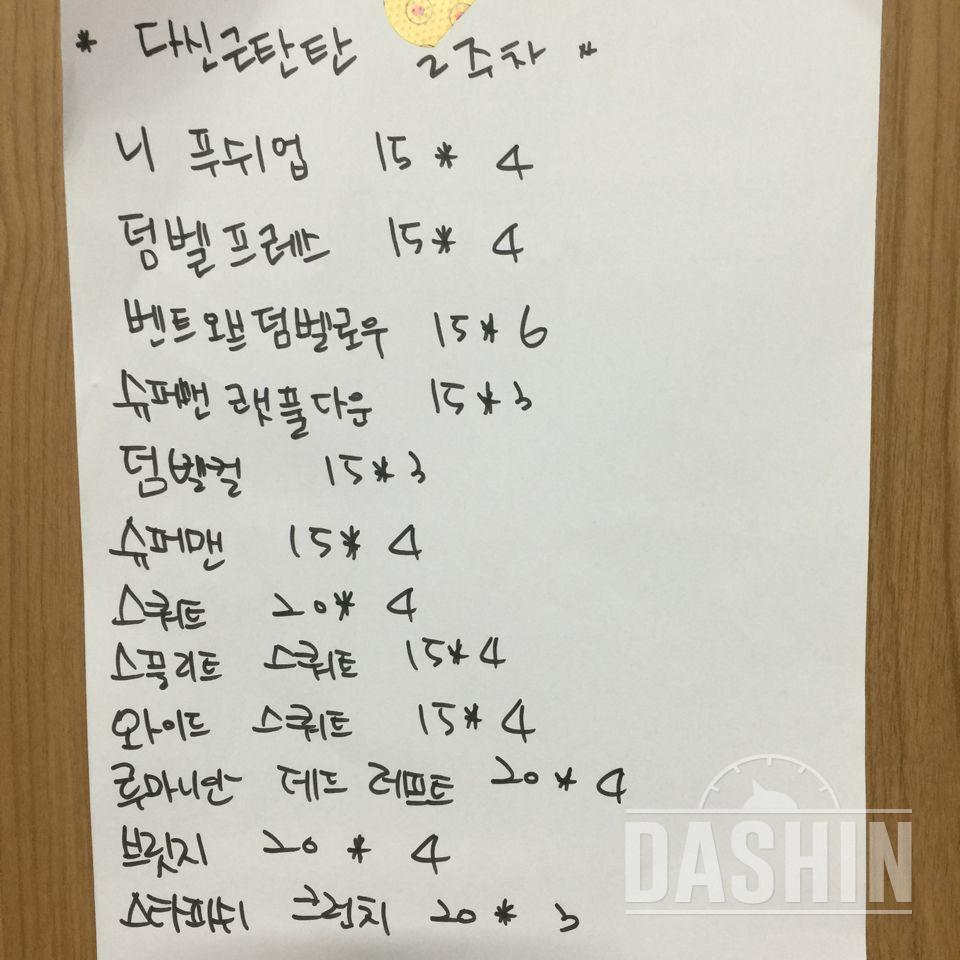 * 다신근탄탄 2주차 *
니 푸쉬업 15 * 4
덤벨프레스 15 * 4
벤트오브덤벨로우 15 * 6
슈퍼맨 랫풀다운 15 * 3
덤벨컬 15 * 3
슈퍼맨 15 * 4
스쿼트 20 * 4
스플리트 스쿼트 15 * 4
와이드 스쿼트 15 * 4
루마니안 데드 레프트 20 * 4
브릿지 20 * 4
스타피쉬 크런치 20 * 3
DASHIN